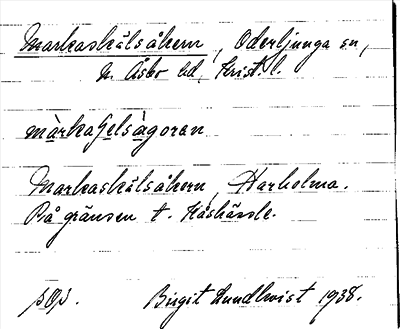 Markaskälsåkern, Oderljunga sn,
N. Åsbo hd, Krist. l.
màrkaʃelsàgoran
Markaskälsåkern, Harholma.
På gränsen t. Häshässle.
Birgit Lundkvist 1938.